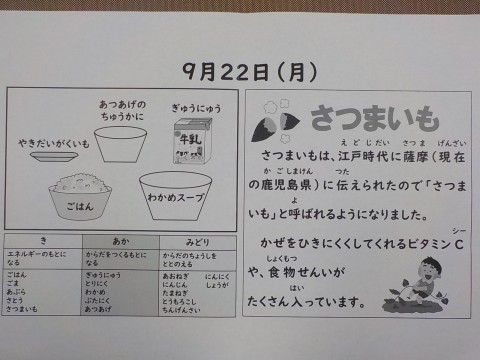 9月22日(月)
あつあげの
ちゅうかに
ぎゅうにゅう
やきだいがくいも
牛乳
ごはん
わかめスープ
き
あか
みどり
エネルギーのもとに
なる
からだをつくるもとに
なる
からだのちょうしを
ととのえる
ごはん
ごま
あぶら
さとう
さつまいも
ぎゅうにゅう
とりにく
わかめ
ぶたにく
あつあげ
あおねぎ にんにく
にんじん しょうが
たまねぎ
とうもろこし
ちんげんさい
さつまいも
えどじだい さつま げんざい
さつまいもは、江戸時代に薩摩(現在
かごしまけん つた
の鹿児島県)に伝えられたので「さつま
よ
いも」と呼ばれるようになりました。
シー
かぜをひきにくくしてくれるビタミンC
しょくもつ
や、食物せんいが
はい
たくさん入っています。